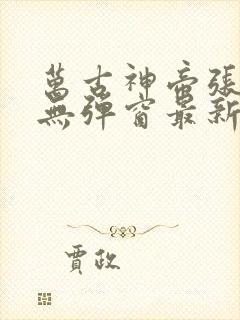 萬古神帝張
無彈窗最新
賈政